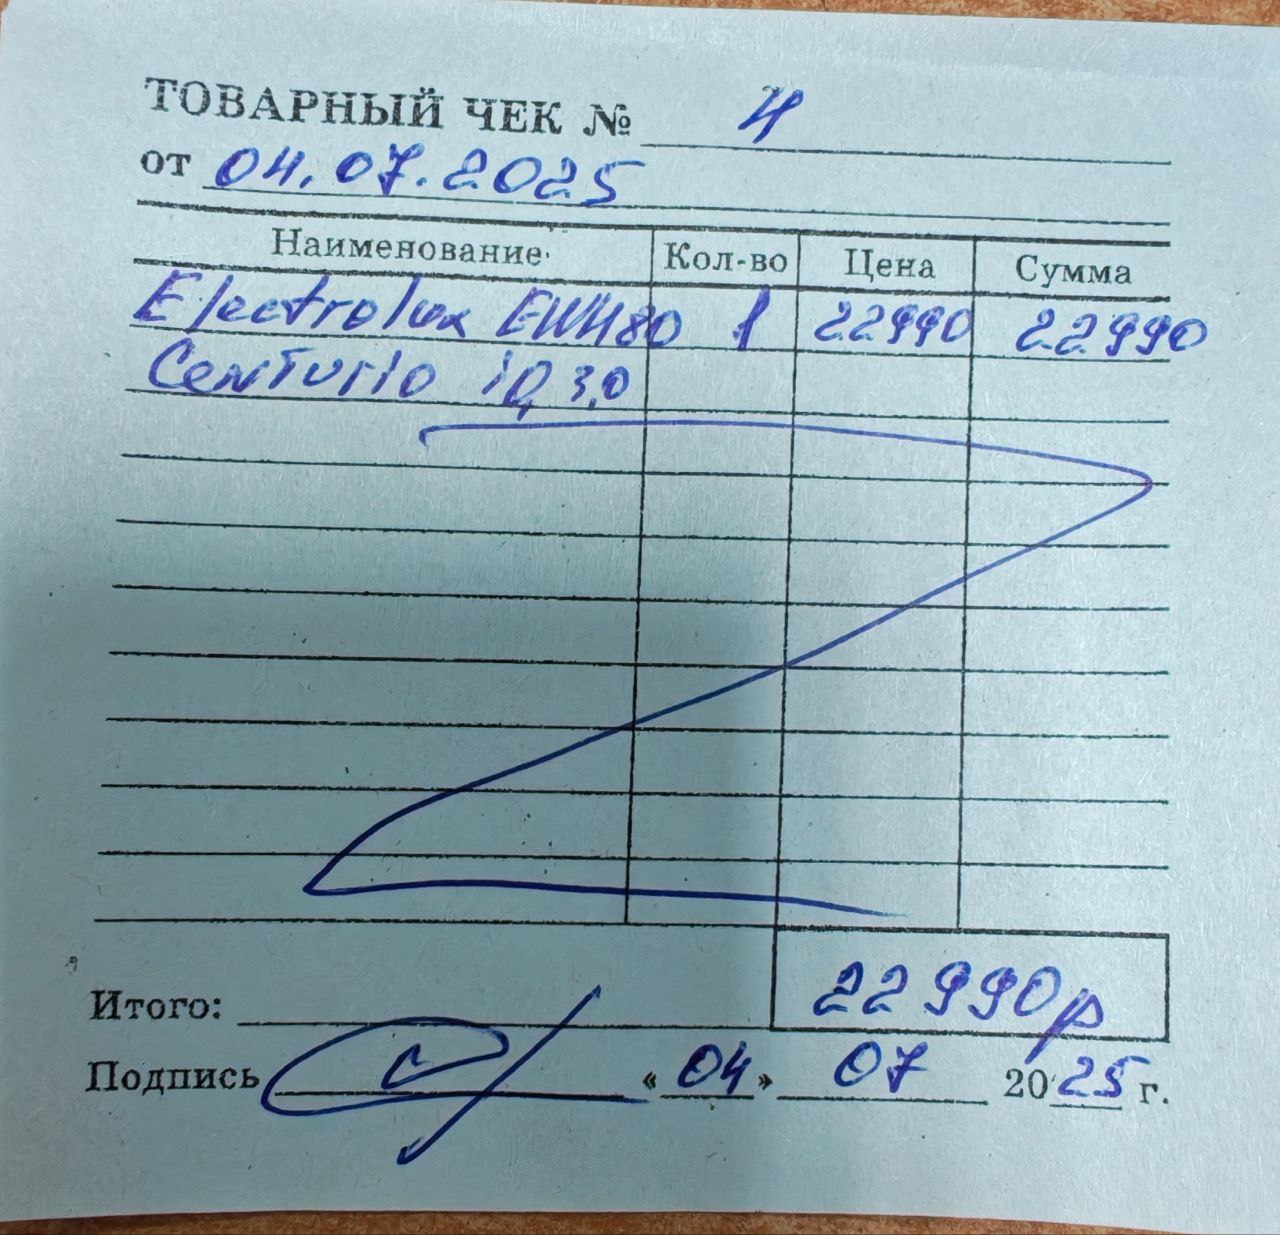 ТОВАРНЫЙ ЧЕК № 4
от 04.07.2025
Наименование Кол-во Цена Сумма
Electrolux EWH80 1 22990 22990
Centurio iQ 3,0
22990р
Итого:
Подпись «04» 07 2025 г.